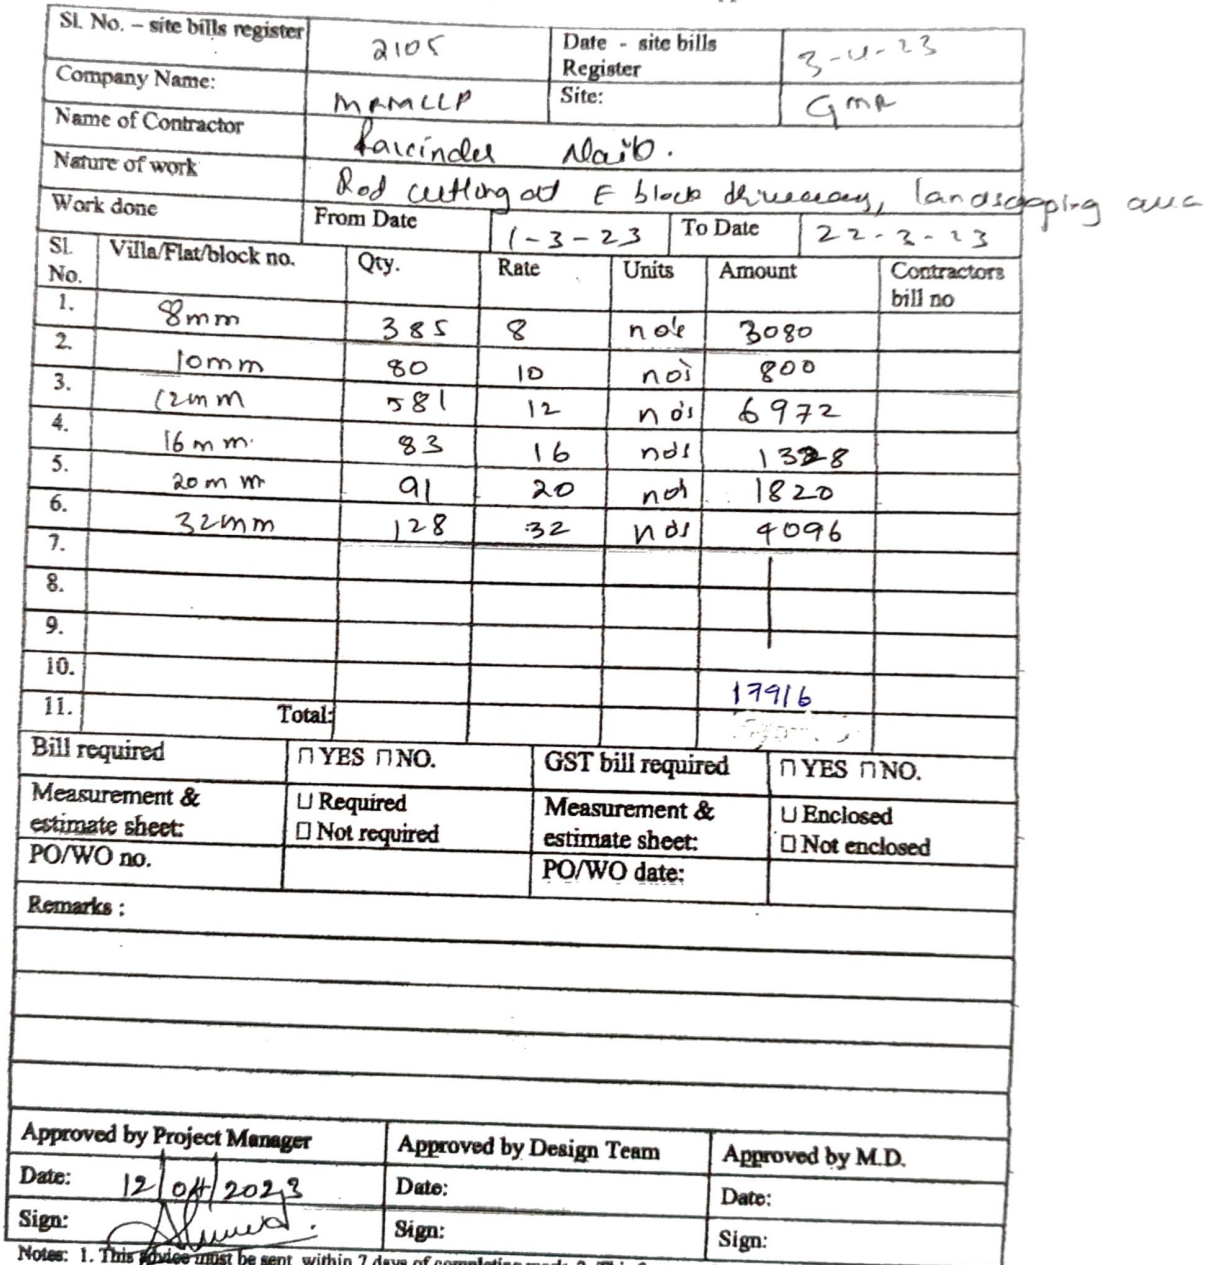 Sl. No. – site bills register 2105 Date - site bills Register 3-4-23
Company Name: MRMLLP Site: GMR
Name of Contractor Ravinder Naib.
Nature of work Rod cutting at E block driveway, landscaping area
Work done From Date 1-3-23 To Date 22-3-23
Sl. No. Villa/Flat/block no. Qty. Rate Units Amount Contractors bill no
1. 8mm 385 8 no's 3080
2. 10mm 80 10 no's 800
3. 12mm 581 12 no's 6972
4. 16mm. 83 16 no's 1328
5. 20mm 91 20 no's 1820
6. 32mm 128 32 no's 4096
7.
8.
9.
10. 17916
11. Total:
Bill required YES NO. GST bill required YES NO.
Measurement & estimate sheet: Required Not required Measurement & estimate sheet: Enclosed Not enclosed
PO/WO no. PO/WO date:
Remarks :
Approved by Project Manager Approved by Design Team Approved by M.D.
Date: 12/04/2023 Date: Date:
Sign: Sign: Sign:
Notes: 1. This advice must be sent within 7 days of